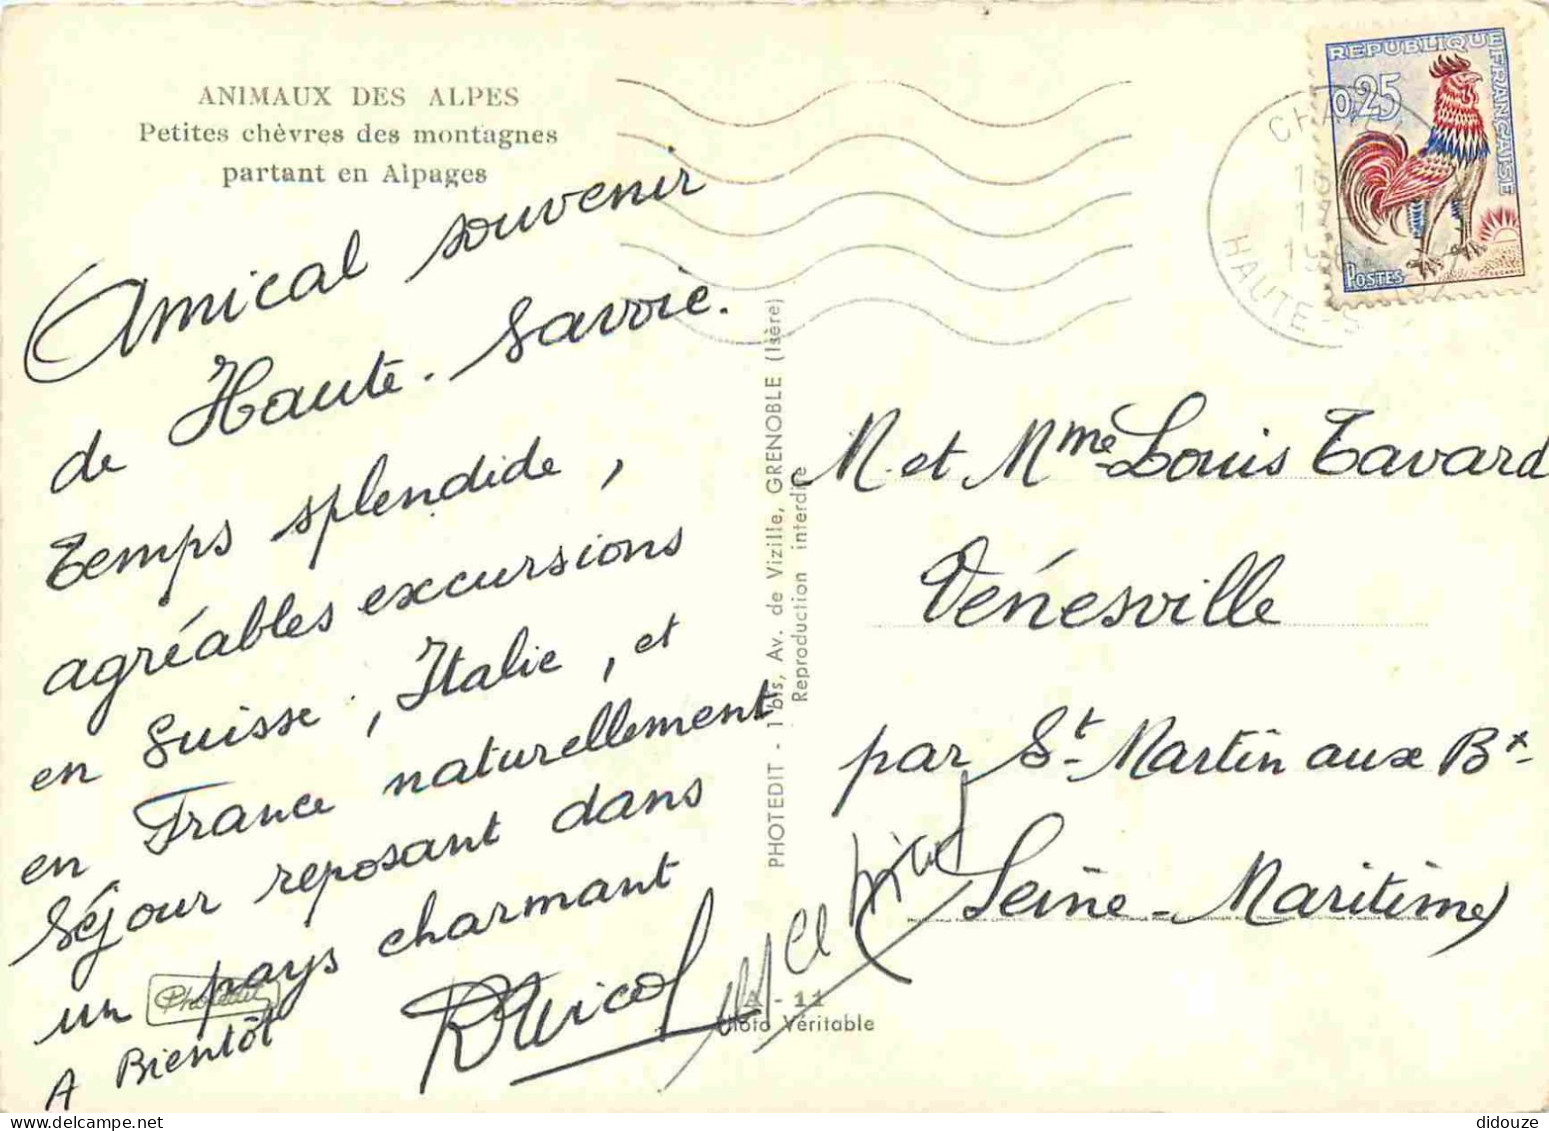 ANIMAUX DES ALPES
Petites chèvres des montagnes
partant en Alpages
Amical souvenir
de Haute-Savoie.
Temps splendide,
agréables excursions
en Suisse, Italie, et
en France naturellement
Séjour reposant dans
un pays charmant
A Bientôt
Photedit
PHOTEDIT - 1 bis, Av. de Vizille, GRENOBLE (Isère)
Reproduction interdite
A - 11
Photo Véritable
REPUBLIQUE FRANÇAISE
0,25
POSTES
HAUTE-S
M. et Mme Louis Tavard
Vénesville
par St-Martin aux Bx-
Seine-Maritime
didouze